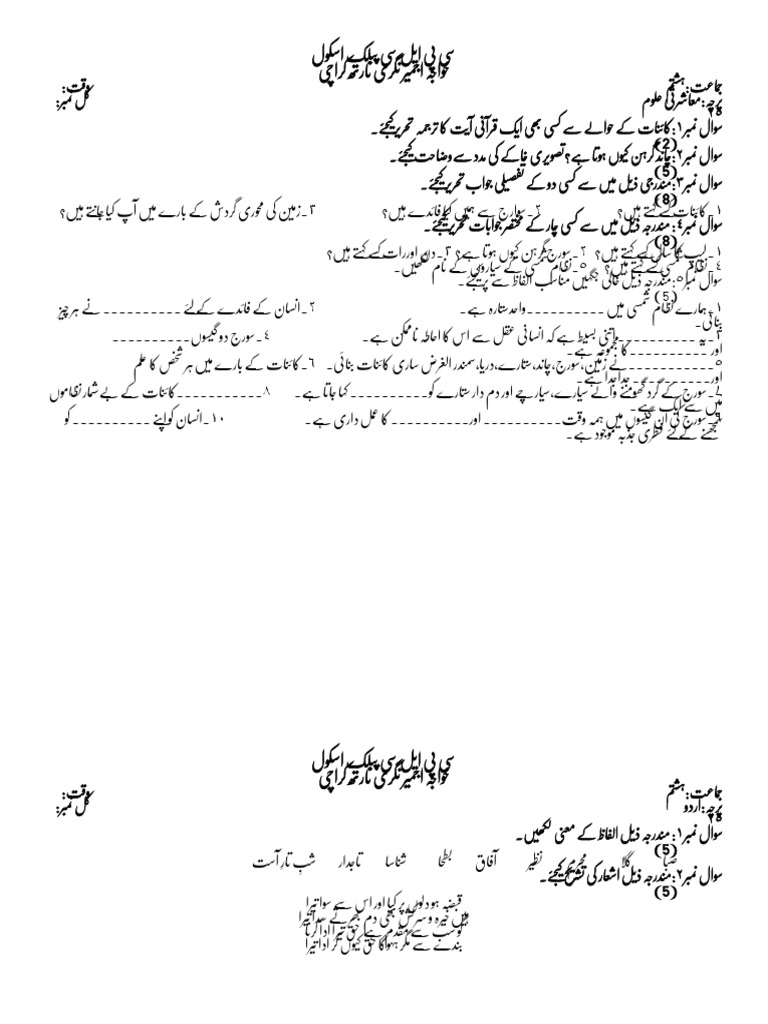 سی پی ایل سی پبلک اسکول
خواجہ اجمیر نگری نارتھ کراچی
جماعت: ہشتم وقت:
پرچہ: معاشرتی علوم کل نمبر:
سوال نمبر۱: کائنات کے حوالے سے کسی بھی ایک قرآنی آیت کا ترجمہ تحریر کیجئے۔
(2)
سوال نمبر۲: چاند گرہن کیوں ہوتا ہے؟ تصویری خاکے کی مدد سے وضاحت کیجئے۔
(5)
سوال نمبر۳: مندرجی ذیل میں سے کسی دو کے تفصیلی جواب تحریر کیجئے۔
(8)
۱۔ کائنات کسے کہتے ہیں؟ ۲۔ سورج سے ہمیں کیا فائدے ہیں؟ ۳۔ زمین کی محوری گردش کے بارے میں آپ کیا جانتے ہیں؟
سوال نمبر٤: مندرجہ ذیل میں سے کسی چار کے مختصر جوابات تحریر کیجئے۔
(8)
۱۔ لیپ کا سال کسے کہتے ہیں؟ ۲۔ سورج گرہن کیوں ہوتا ہے؟ ۳۔ دن اور رات کسے کہتے ہیں؟
٤۔ نظام شمسی کسے کہتے ہیں؟ ٥۔ نظام شمسی کے سیاروں کے نام لکھیں۔
سوال نمبر٥: مندرجہ ذیل خالی جگہیں مناسب الفاظ سے پر کیجئے۔
(5)
۱۔ ہمارے نظام شمسی میں ---------- واحد ستارہ ہے۔ ۲۔ انسان کے فائدے کے لئے ---------- نے ہر چیز
بنائی۔
۳۔ یہ ---------- اتنی بسیط ہے کہ انسانی عقل سے اس کا احاطہ ناممکن ہے۔ ٤۔ سورج دو گیسوں----------
اور ---------- کا مجموعہ ہے۔
٥۔----------نے زمین، سورج، چاند، ستارے، دریا، سمندر الغرض ساری کائنات بنائی۔ ٦۔ کائنات کے بارے میں ہر شخص کا علم
اور---------- جدا جدا ہے۔
۷۔ سورج کے گرد گھومنے والے سیارے، سیارچے اور دم دار ستارے کو---------- کہا جاتا ہے۔ ۸۔----------کائنات کے بے شمار نظاموں
میں سے ایک ہے۔
۹۔ سورج کی ان گیسوں میں ہمہ وقت---------- اور---------- کا عمل جاری ہے۔ ۱۰۔ انسان کو اپنے ---------- کو
سمجھنے کے لئے فطری جذبہ موجود ہے۔
سی پی ایل سی پبلک اسکول
خواجہ اجمیر نگری نارتھ کراچی
جماعت: ہشتم وقت:
پرچہ: اردو کل نمبر:
سوال نمبر۱: مندرجہ ذیل الفاظ کے معنی لکھیں۔
(5)
صبا گلا محرم نظیر آفاق بطحا شناسا تاجدار شبِ تارِ آست
سوال نمبر۲: مندرجہ ذیل اشعار کی تشریح کیجئے۔
(5)
قبضہ ہو دلوں پر کیا اور اس سے سوا تیرا
ہیں خیرہ و سرکش بھی دم بھرتے سدا تیرا
گو سب سے مقدم ہے حق تیرا ادا کرنا
بندے سے مگر ہوگا حق کیوں کر ادا تیرا